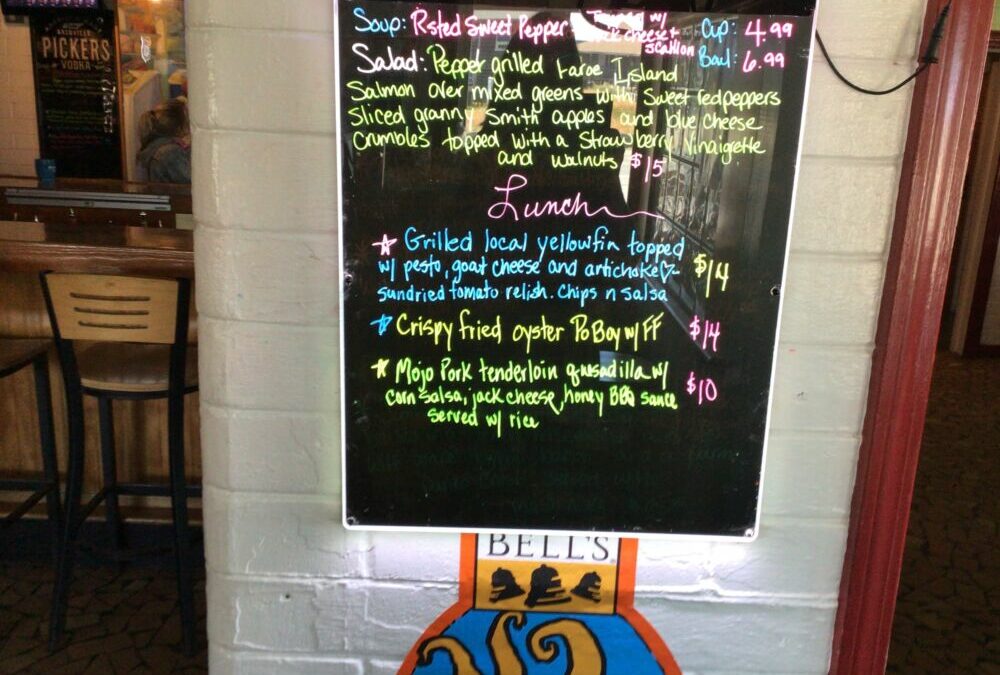 PICKERS
VODKA
Soup: Rsted Sweet Pepper w/ Cup: 4.99
cheese +
scallion Bowl: 6.99
Salad: Pepper grilled Faroe Island
Salmon over mixed greens with Sweet red peppers
Sliced granny Smith apples and blue cheese
Crumbles topped with a Strawberry Vinaigrette
and walnuts $15
Lunch
Grilled local yellowfin topped
w/ pesto, goat cheese and artichoke
sundried tomato relish. Chips n salsa $14
Crispy fried oyster Po Boy w/ FF $14
Mojo Pork tenderloin qusadilla w/
corn salsa, jack cheese, honey BBQ sauce $10
served w/ rice
BELL'S